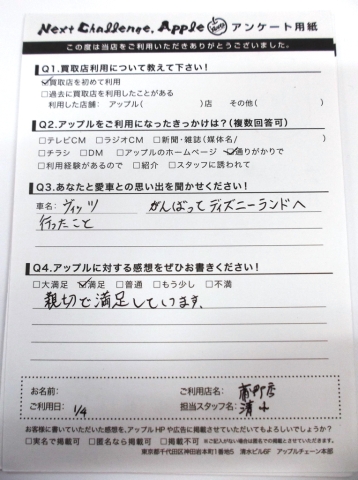 Next Challenge, Apple アンケート用紙
この度は当店をご利用いただきありがとうございました。
Q1.買取店利用について教えて下さい!
☑買取店を初めて利用
□過去に買取店を利用したことがある
利用した店舗: アップル( )店 その他( )
Q2.アップルをご利用になったきっかけは?(複数回答可)
□テレビCM □ラジオCM □新聞・雑誌(媒体名/ )
□チラシ □DM □アップルのホームページ ☑通りがかりで
□利用経験があるので □紹介 □スタッフに誘われて
Q3.あなたと愛車との思い出を聞かせてください!
車名: ヴィッツ がんばってディズニーランドへ
行ったこと
Q4.アップルに対する感想をぜひお書きください!
□大満足 ☑満足 □普通 □もう少し □不満
親切で満足しています。
お名前: ご利用店名:
ご利用日: 1/4 担当スタッフ名:
お客様に書いていただいた感想を、アップルHPや広告に掲載させていただいてもよろしいでしょうか?
□実名で掲載可 □匿名なら掲載可 □掲載不可 ※ご記入がない場合は匿名での掲載とさせていただきます。
東京都千代田区神田岩本町1番地5 清水ビル6F アップルチェーン本部